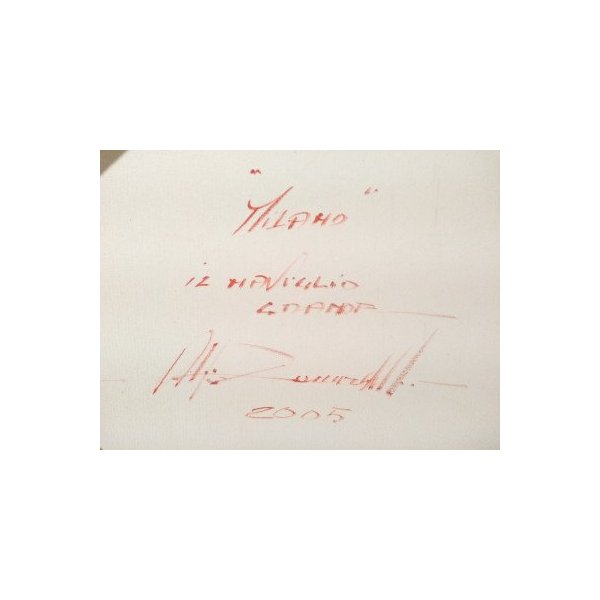 "MILANO"
IL NAVIGLIO
GRANDE
2005